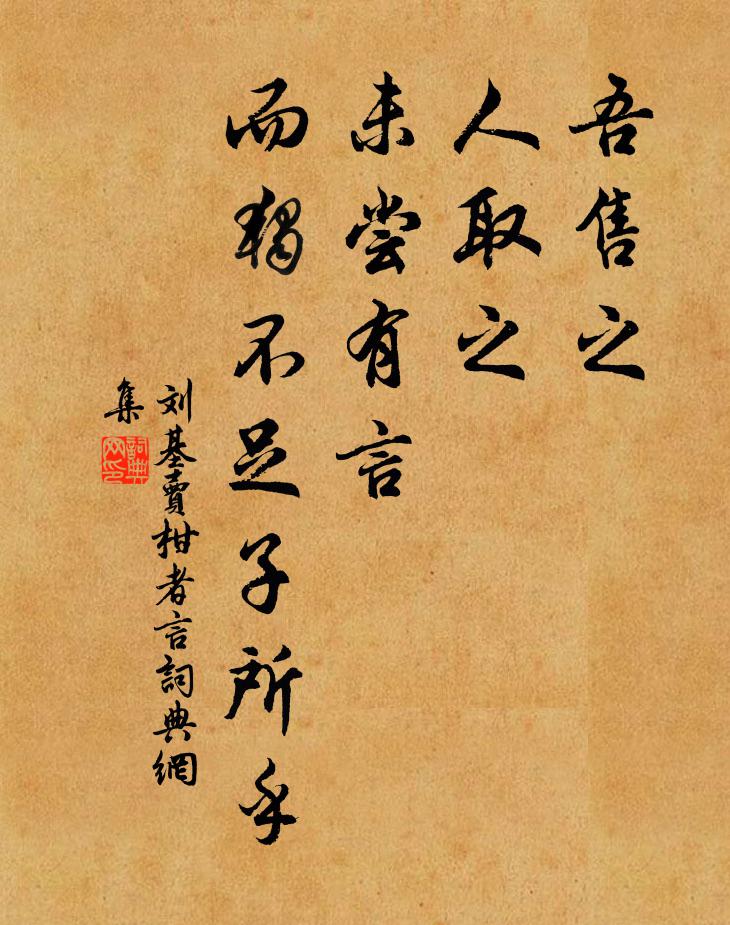 吾售之
人取之
未尝有言
而独不足子所乎
刘基賣柑者言詞典網
集
詞典
网印